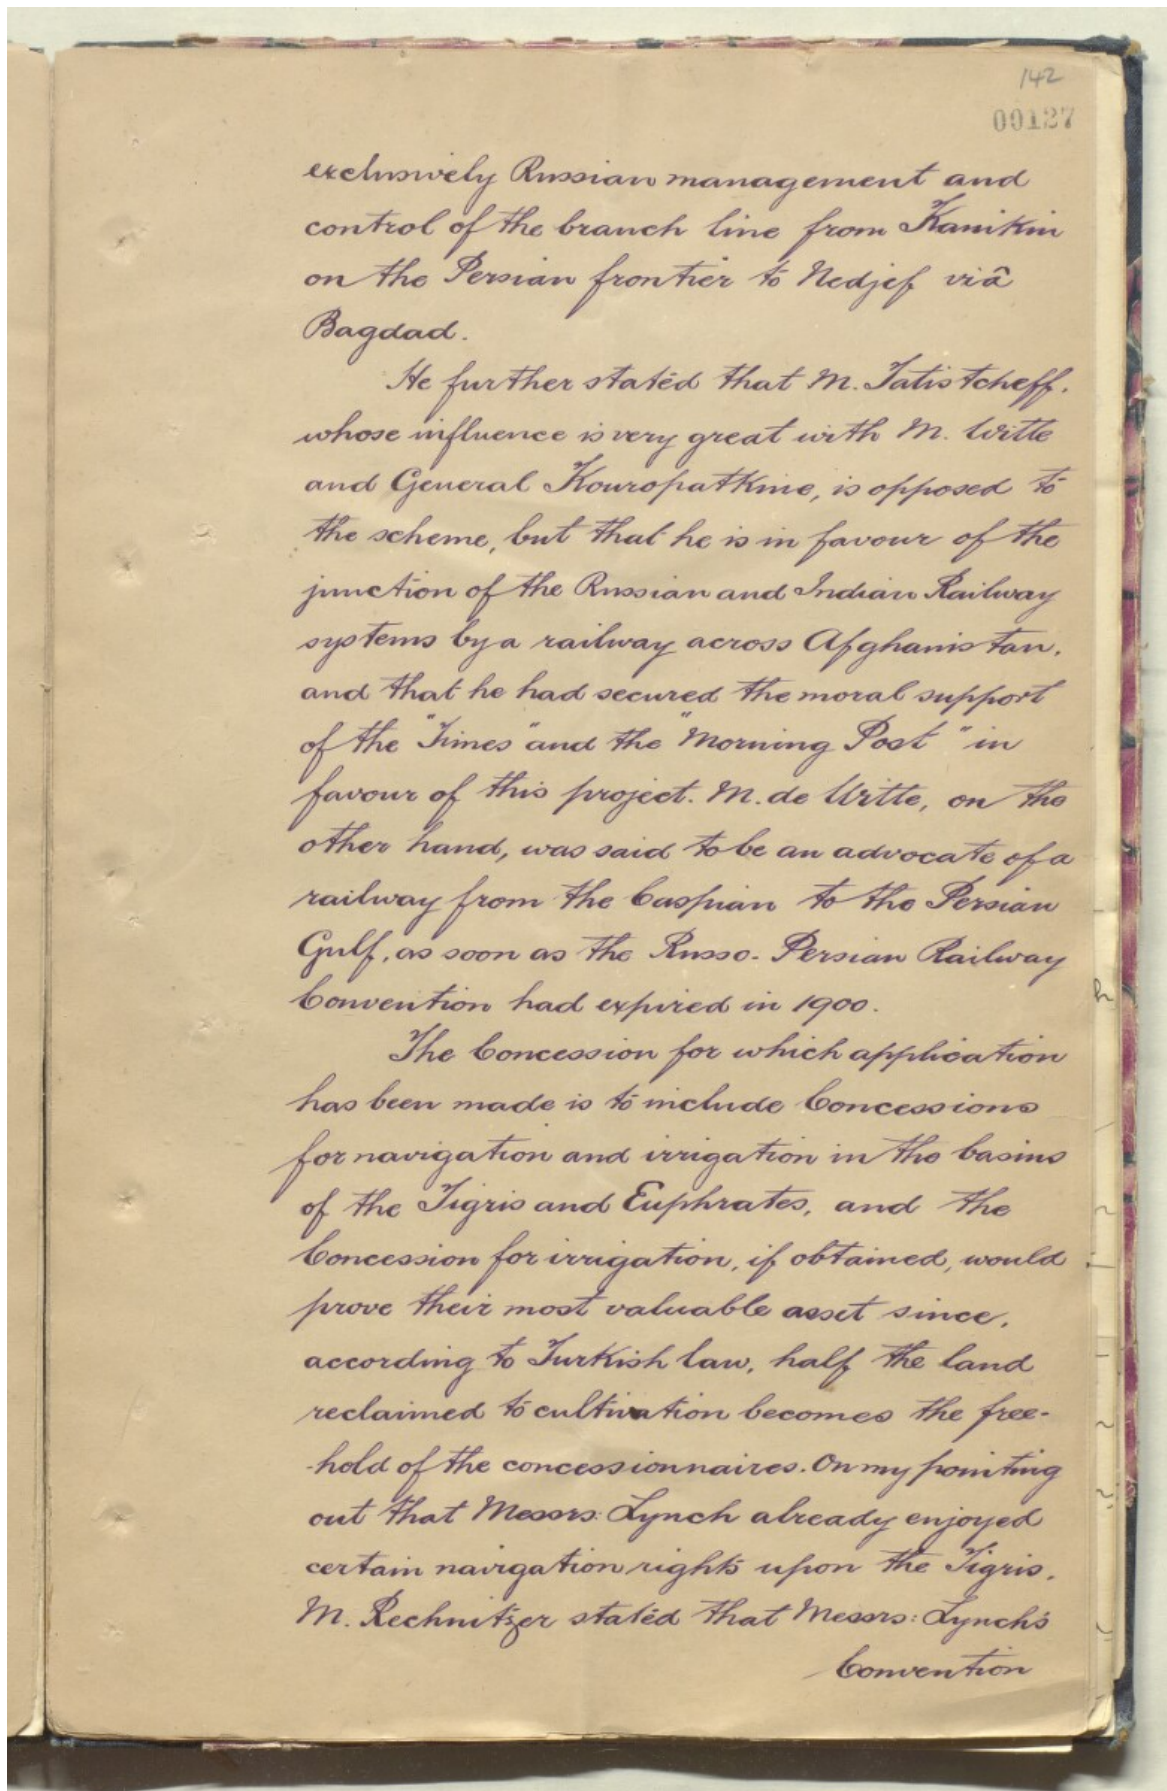 142
00127
exclusively Russian management and
control of the branch line from Kanikin
on the Persian frontier to Nedjef viâ
Bagdad.
He further stated that M. Tatistcheff,
whose influence is very great with M. Witte
and General Kouropatkine, is opposed to
the scheme, but that he is in favour of the
junction of the Russian and Indian Railway
systems by a railway across Afghanistan,
and that he had secured the moral support
of the "Times" and the "Morning Post" in
favour of this project. M. de Witte, on the
other hand, was said to be an advocate of a
railway from the Caspian to the Persian
Gulf, as soon as the Russo-Persian Railway
Convention had expired in 1900.
The Concession for which application
has been made is to include Concessions
for navigation and irrigation in the basins
of the Tigris and Euphrates, and the
Concession for irrigation, if obtained, would
prove their most valuable asset since,
according to Turkish law, half the land
reclaimed to cultivation becomes the free-
-hold of the concessionnaires. On my pointing
out that Messrs: Lynch already enjoyed
certain navigation rights upon the Tigris,
M. Rechnitzer stated that Messrs: Lynch's
Convention